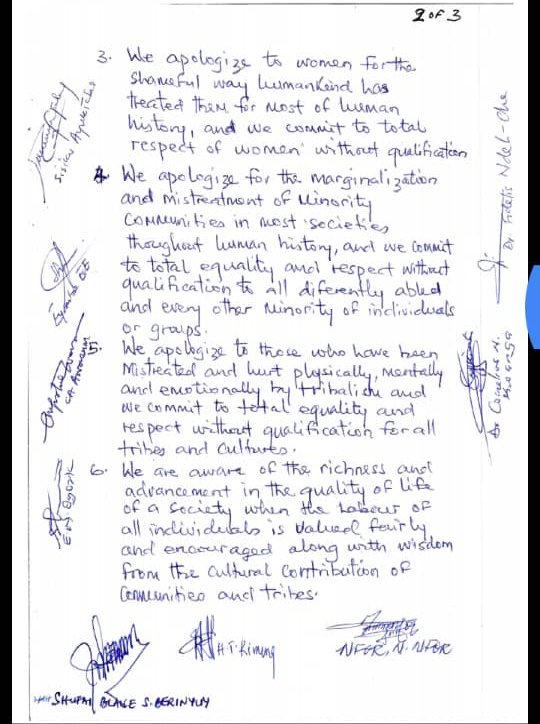 2 OF 3
3. We apologize to women for the
shameful way humankind has
treated them for most of human
history, and we commit to total
respect of women without qualification
4. We apologize for the marginalization
and mistreatment of Minority
Communities in most societies
thoughout human history, and we commit
to total equality and respect without
qualification to all diferently abled
and every other minority of individuals
or groups.
5. We apologize to those who have been
Mistreated and hurt physically, mentally
and emotionally by tribalism and
we commit to total equality and
respect without qualification for all
tribes and cultures.
6. We are aware of the richness and
advancement in the quality of life
of a society when the labour of
all individuals is valued fairly
and encouraged along with wisdom
from the cultural contribution of
Communities and tribes.
H.T. Kimeng
NFOR, N. NFOR
SHUFAI BLAISE S. BERINYUY
Dr Fidelis Ndeh-Che